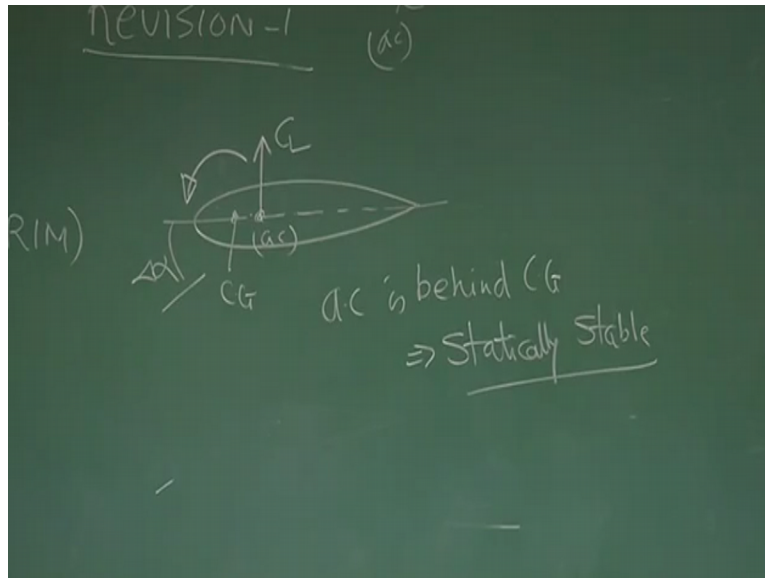 REVISION-1
(ac)
CL
RIM)
(ac)
Δα
CG
a.c is behind CG
⇒ Statically Stable